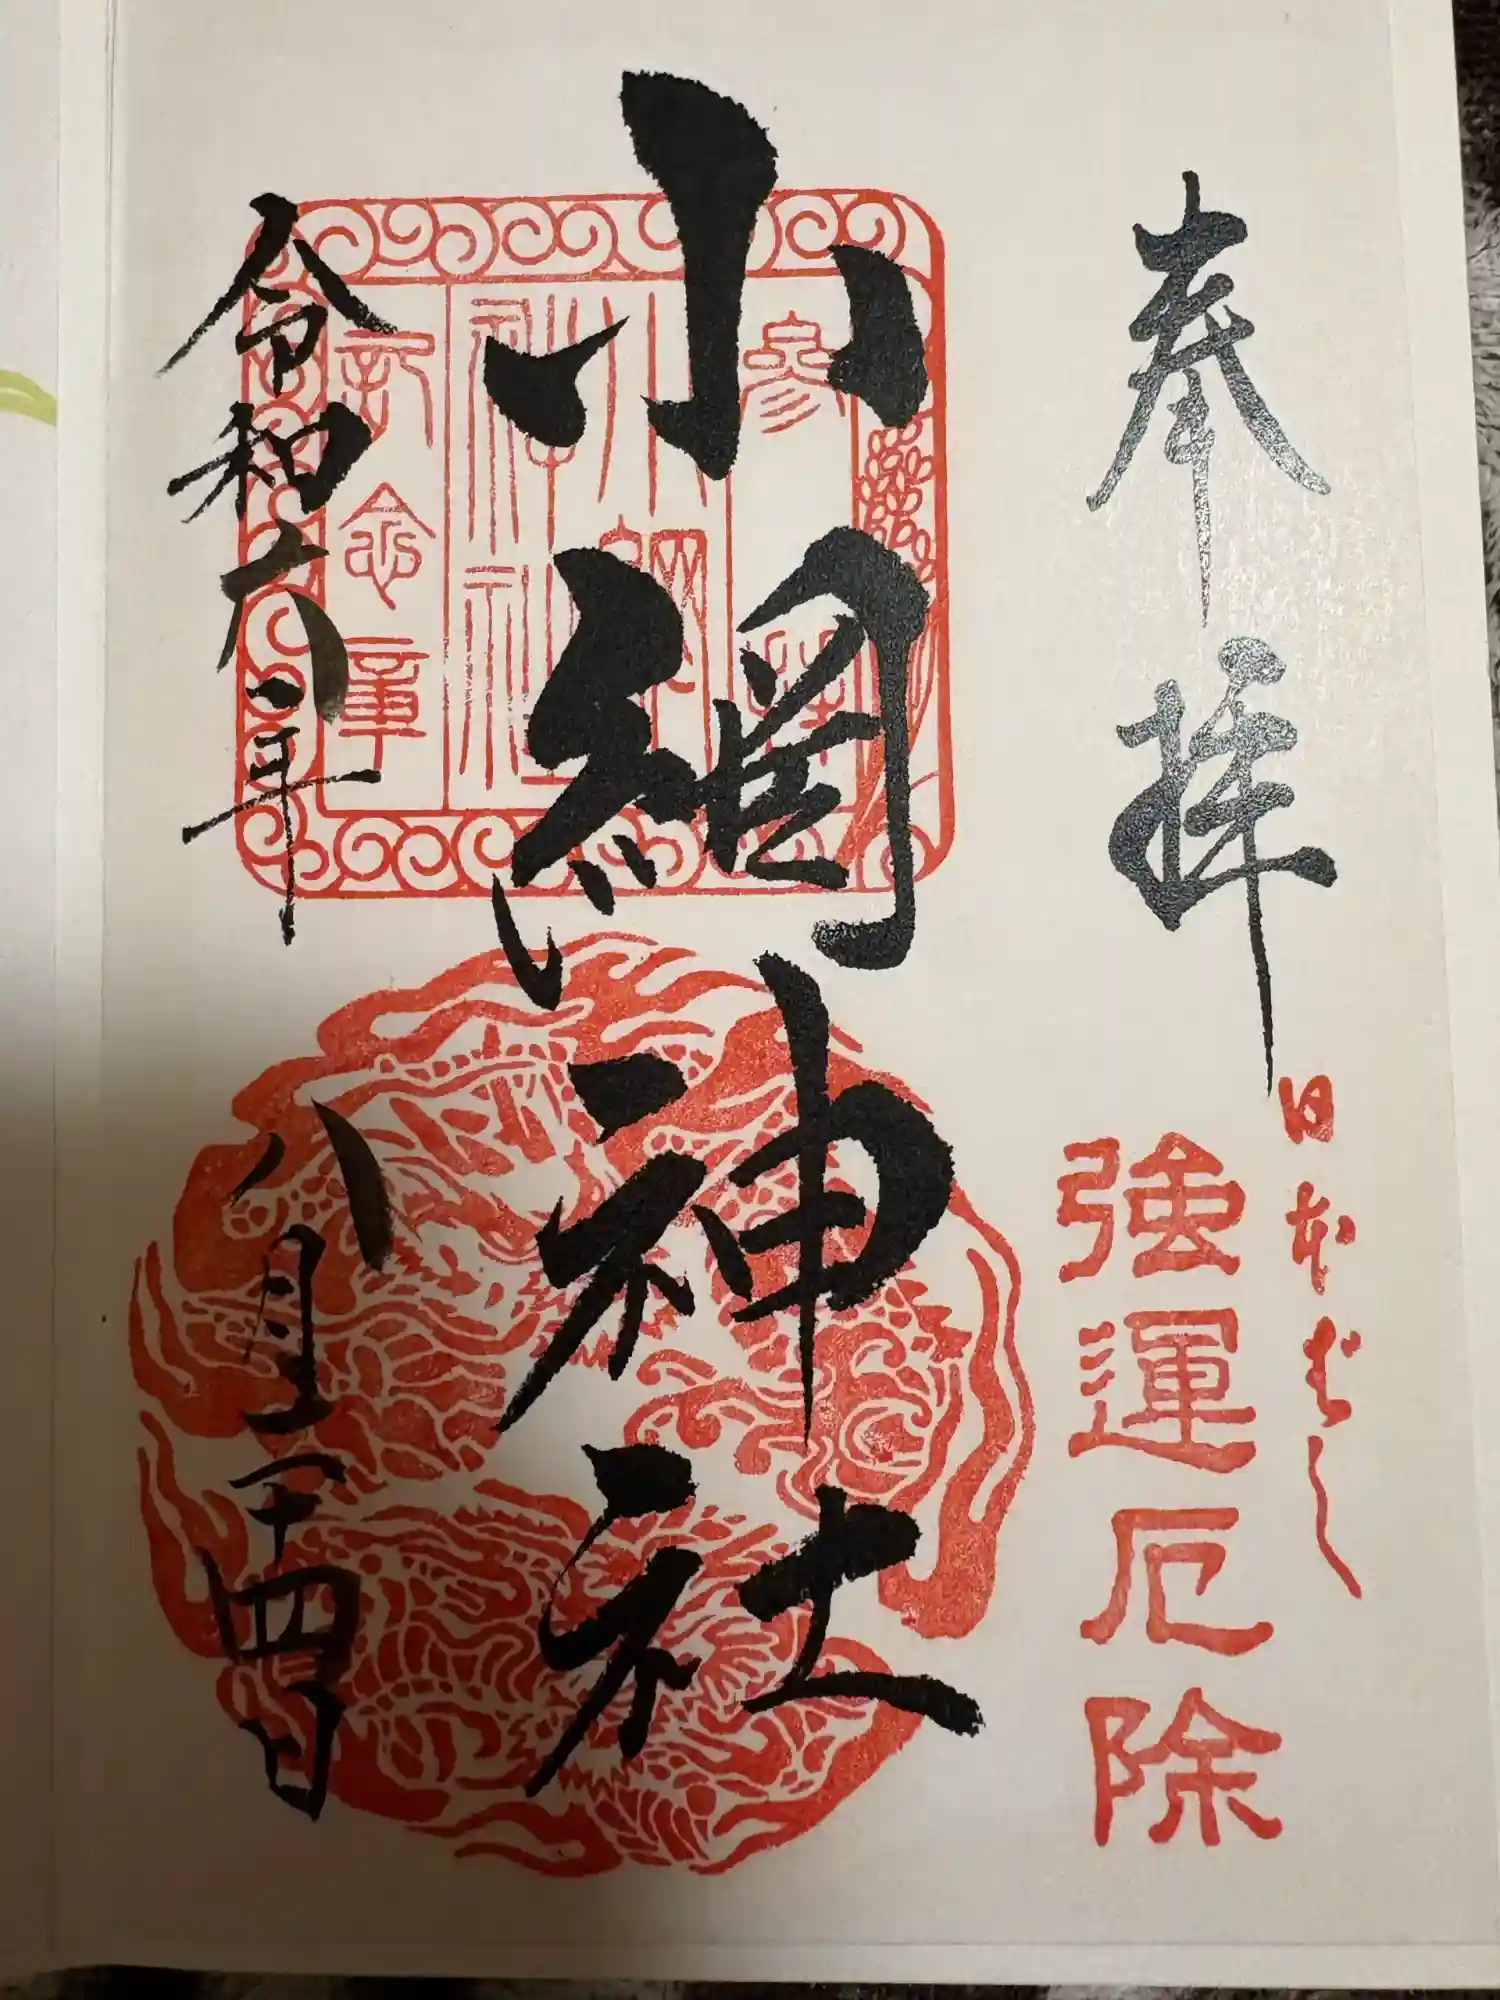 奉拝
日本橋
強運厄除
小網神社
参拝
小網
神社
記念章
令和六年
八月二十四日